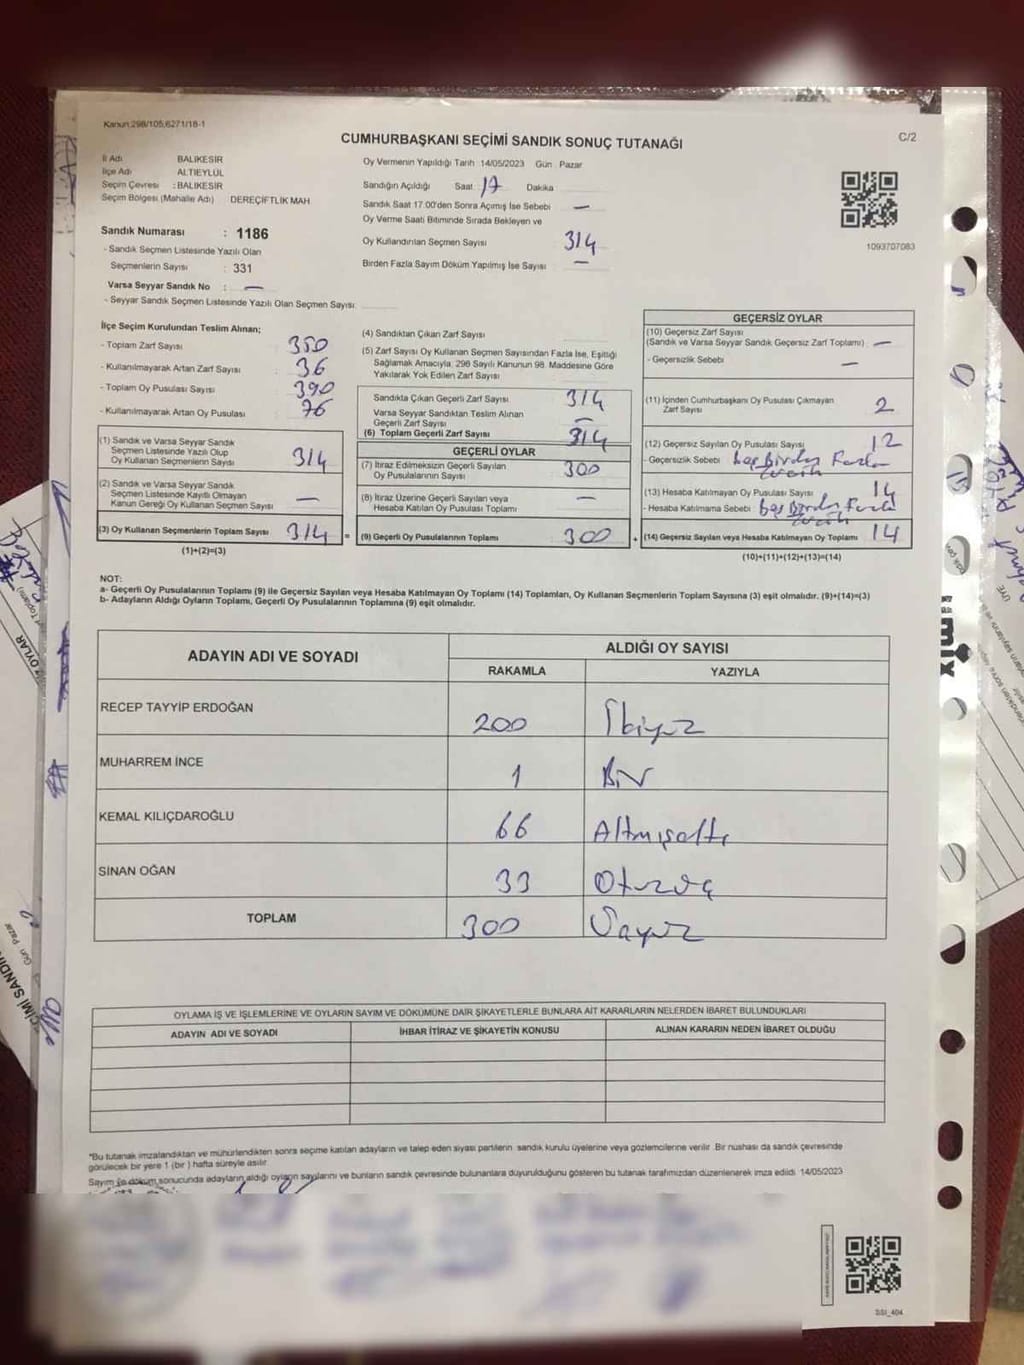 Kanun;298/105;6271/18-1
CUMHURBAŞKANI SEÇİMİ SANDIK SONUÇ TUTANAĞI
C/2
İl Adı BALIKESİR
İlçe Adı ALTIEYLÜL
Seçim Çevresi : BALIKESİR
Seçim Bölgesi (Mahalle Adı) DEREÇİFTLİK MAH
Sandık Numarası : 1186
- Sandık Seçmen Listesinde Yazılı Olan
Seçmenlerin Sayısı : 331
Varsa Seyyar Sandık No : —
- Seyyar Sandık Seçmen Listesinde Yazılı Olan Seçmen Sayısı:
Oy Vermenin Yapıldığı Tarih :14/05/2023 Gün : Pazar
Sandığın Açıldığı Saat: 17 Dakika
Sandık Saat 17.00'den Sonra Açımış İse Sebebi —
Oy Verme Saati Bitiminde Sırada Bekleyen ve
Oy Kullandırılan Seçmen Sayısı 314
Birden Fazla Sayım Döküm Yapılmış İse Sayısı —
1093707083
İlçe Seçim Kurulundan Teslim Alınan;
- Toplam Zarf Sayısı : 350
- Kullanılmayarak Artan Zarf Sayısı : 36
- Toplam Oy Pusulası Sayısı : 390
- Kullanılmayarak Artan Oy Pusulası : 76
(1) Sandık ve Varsa Seyyar Sandık
Seçmen Listesinde Yazılı Olup
Oy Kullanan Seçmenlerin Sayısı 314
(2) Sandık ve Varsa Seyyar Sandık
Seçmen Listesinde Kayıtlı Olmayan
Kanun Gereği Oy Kullanan Seçmen Sayısı —
(3) Oy Kullanan Seçmenlerin Toplam Sayısı 314 =
(1)+(2)=(3)
(4) Sandıktan Çıkan Zarf Sayısı
(5) Zarf Sayısı Oy Kullanan Seçmen Sayısından Fazla İse, Eşitliği
Sağlamak Amacıyla; 298 Sayılı Kanunun 98. Maddesine Göre
Yakılarak Yok Edilen Zarf Sayısı
Sandıkta Çıkan Geçerli Zarf Sayısı 314
Varsa Seyyar Sandıktan Teslim Alınan
Geçerli Zarf Sayısı —
(6) Toplam Geçerli Zarf Sayısı 314
GEÇERLİ OYLAR
(7) İtiraz Edilmeksizin Geçerli Sayılan
Oy Pusulalarının Sayısı 300
(8) İtiraz Üzerine Geçerli Sayılan veya
Hesaba Katılan Oy Pusulası Toplamı —
(9) Geçerli Oy Pusulalarının Toplamı 300 +
GEÇERSİZ OYLAR
(10) Geçersiz Zarf Sayısı
(Sandık ve Varsa Seyyar Sandık Geçersiz Zarf Toplamı) —
- Geçersizlik Sebebi : —
(11) İçinden Cumhurbaşkanı Oy Pusulası Çıkmayan
Zarf Sayısı 2
(12) Geçersiz Sayılan Oy Pusulası Sayısı 12
- Geçersizlik Sebebi : Birden Fazla
(13) Hesaba Katılmayan Oy Pusulası Sayısı 14
- Hesaba Katılmama Sebebi : Birden Fazla
(14) Geçersiz Sayılan veya Hesaba Katılmayan Oy Toplamı 14
(10)+(11)+(12)+(13)=(14)
NOT:
a- Geçerli Oy Pusulalarının Toplamı (9) ile Geçersiz Sayılan veya Hesaba Katılmayan Oy Toplamı (14) Toplamları, Oy Kullanan Seçmenlerin Toplam Sayısına (3) eşit olmalıdır. (9)+(14)=(3)
b- Adayların Aldığı Oyların Toplamı, Geçerli Oy Pusulalarının Toplamına (9) eşit olmalıdır.
ADAYIN ADI VE SOYADI ALDIĞI OY SAYISI
RAKAMLA YAZIYLA
RECEP TAYYİP ERDOĞAN 200 İkiyüz
MUHARREM İNCE 1 Bir
KEMAL KILIÇDAROĞLU 66 Altmışaltı
SİNAN OĞAN 33 Otuzüç
TOPLAM 300 Üçyüz
OYLAMA İŞ VE İŞLEMLERİNE VE OYLARIN SAYIM VE DÖKÜMÜNE DAİR ŞİKAYETLERLE BUNLARA AİT KARARLARIN NELERDEN İBARET BULUNDUKLARI
ADAYIN ADI VE SOYADI İHBAR İTİRAZ VE ŞİKAYETİN KONUSU ALINAN KARARIN NEDEN İBARET OLDUĞU
*Bu tutanak imzalandıktan ve mühürlendikten sonra seçime katılan adayların ve talep eden siyasi partilerin sandık kurulu üyelerine veya gözlemcilerine verilir. Bir nüshası da sandık çevresinde
görülecek bir yere 1 (bir ) hafta süreyle asılır.
Sayım ve döküm sonucunda adayların aldığı oyların sayılarını ve bunların sandık çevresinde bulunanlara duyurulduğunu gösteren bu tutanak tarafımızdan düzenlenerek imza edildi. 14/05/2023
SSI_404